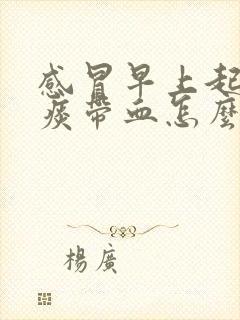 感冒早上起
痰帶血怎麼
楊廣